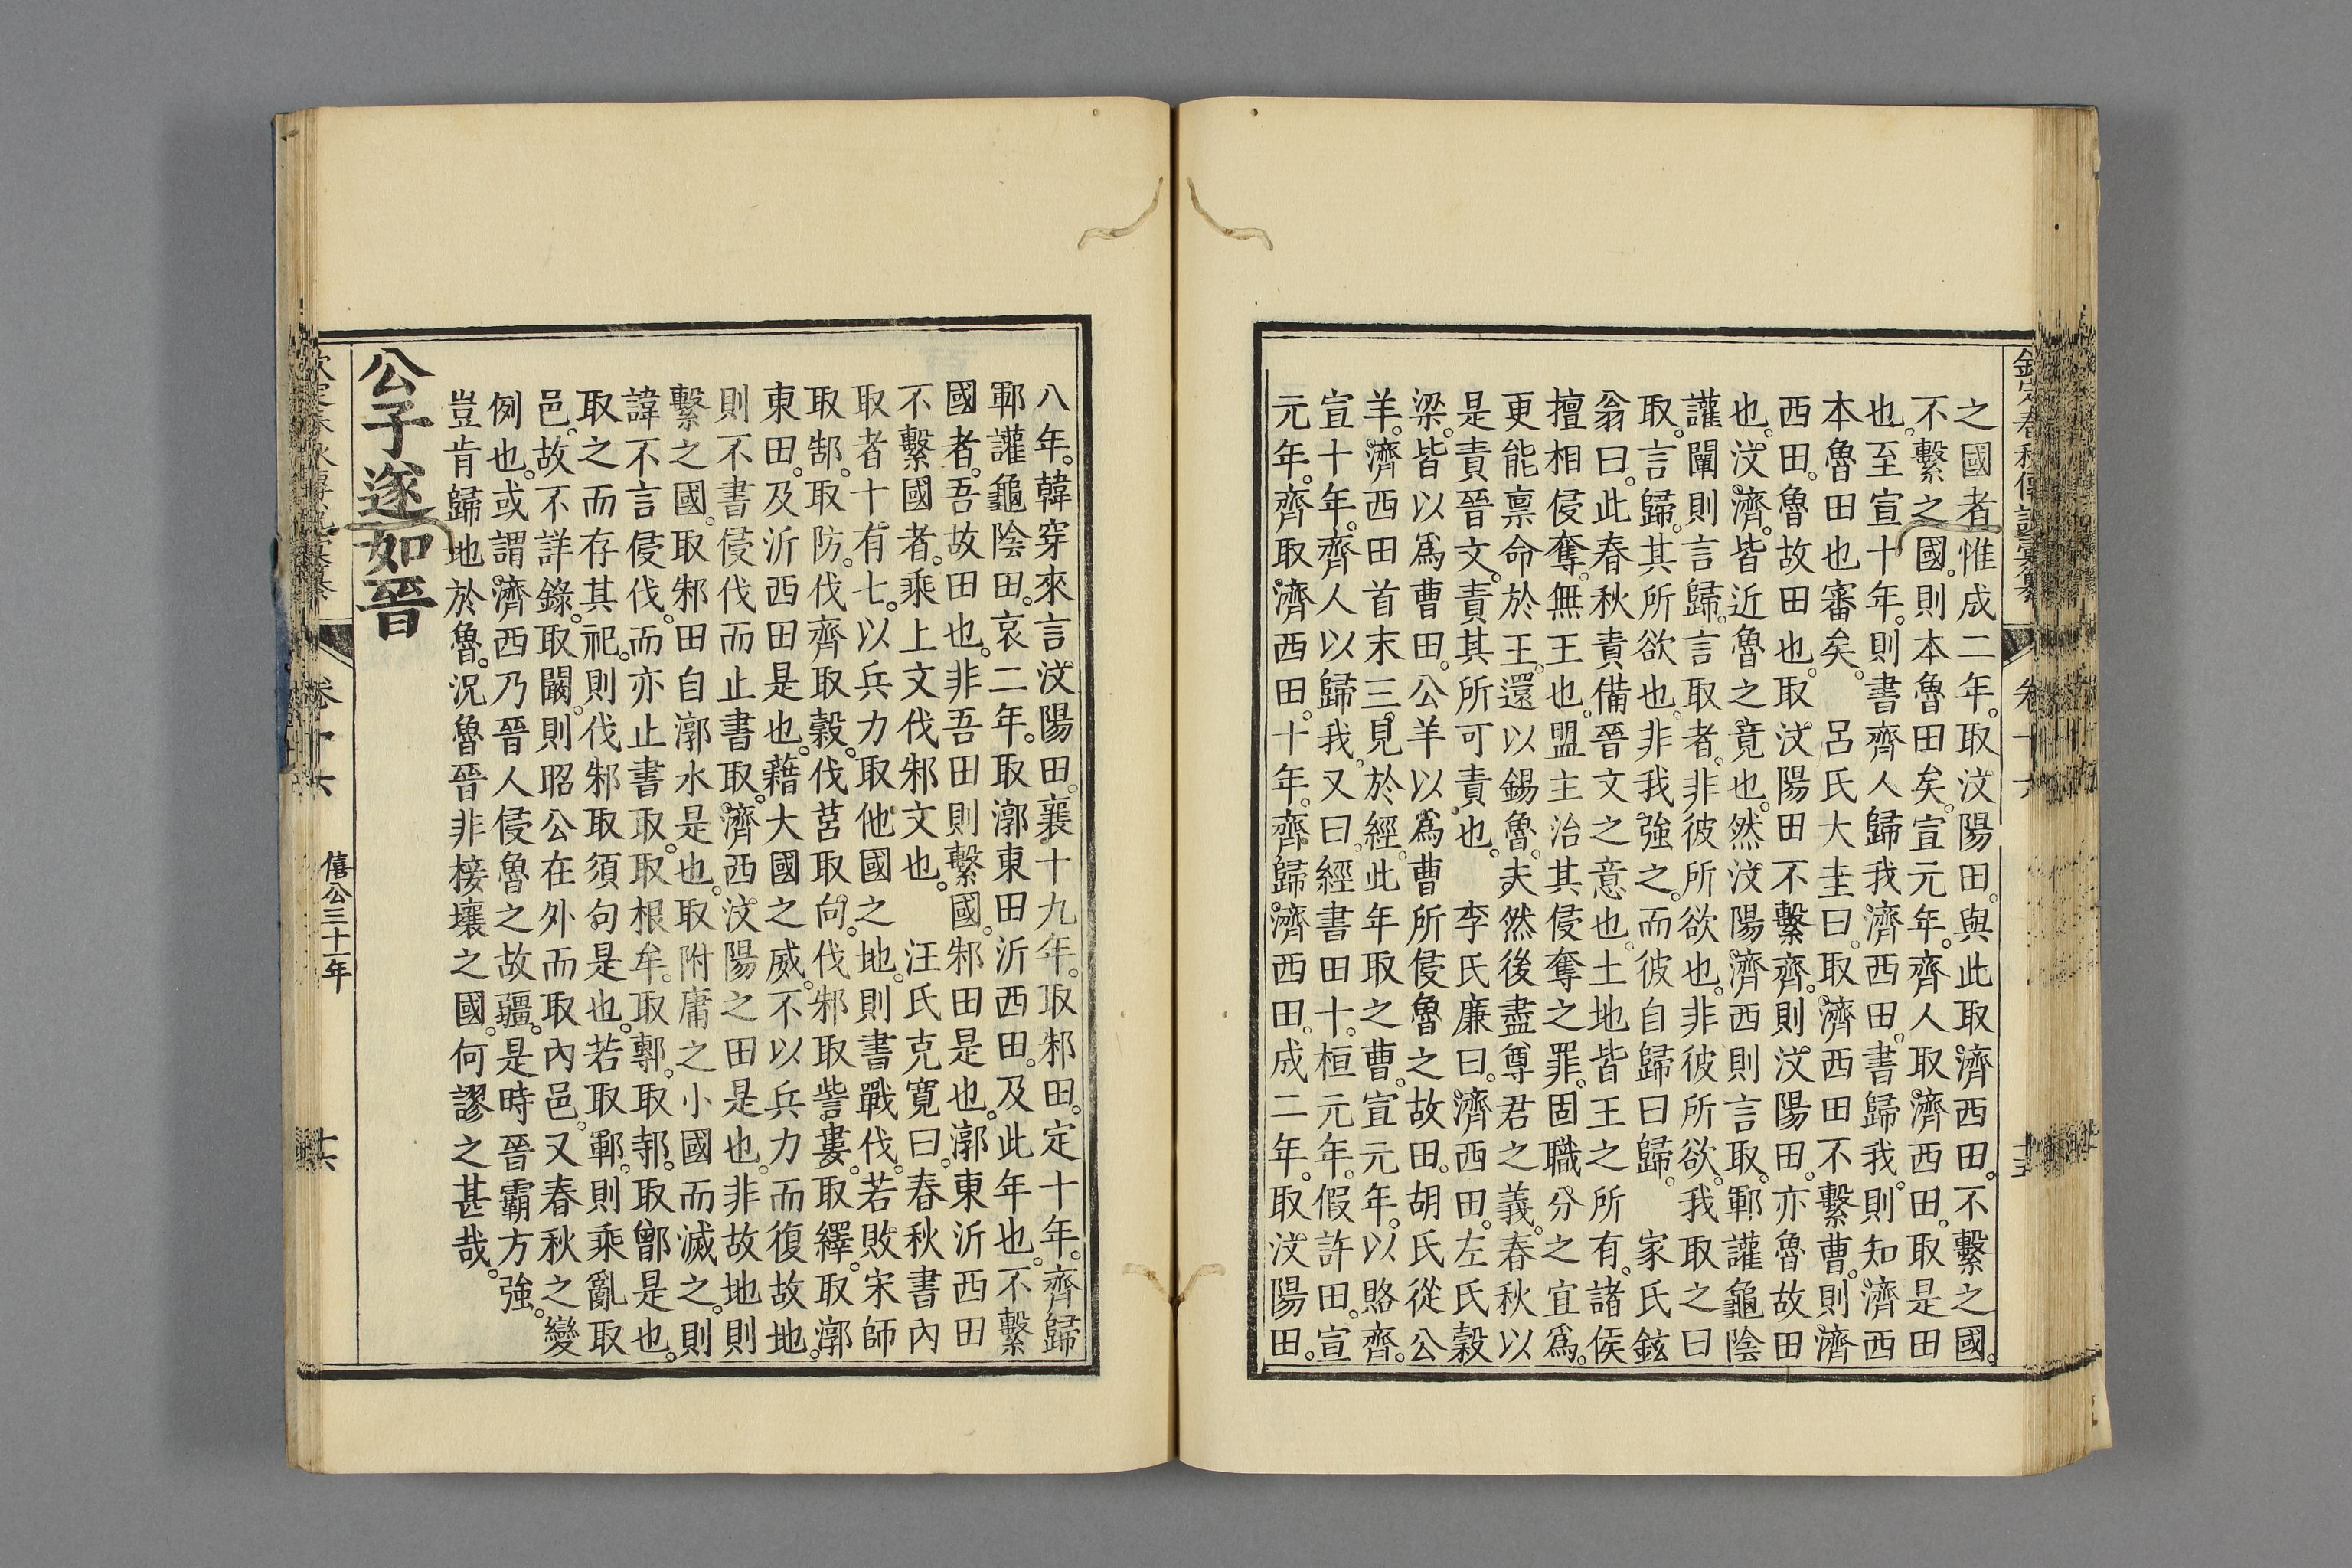 之國者惟成二年。取汶陽田。與此取濟西田。不繫之國。
不繫之國。則本魯田矣。宣元年。齊人取濟西田。取是田
也。至宣十年。則書齊人歸我濟西田。書歸我。則知濟西
本魯田也審矣。 呂氏大圭曰。取濟西田不繫曹。則濟
西田。魯故田也。取汶陽田不繫齊。則汶陽田。亦魯故田
也。汶濟。皆近魯之竟也。然汶陽濟西則言取。鄆讙龜陰
讙闡則言歸。言取者。非彼所欲也。非彼所欲。我取之曰
取。言歸。其所欲也。非我強之。而彼自歸曰歸。 家氏鉉
翁曰。此春秋責備晉文之意也。土地皆王之所有。諸侯
擅相侵奪。無王也。盟主治其侵奪之罪。固職分之宜爲。
更能禀命於王。還以錫魯。夫然後盡尊君之義。春秋以
是責晉文。責其所可責也。 李氏廉曰。濟西田。左氏穀
梁。皆以爲曹田。公羊以爲曹所侵魯之故田。胡氏從公
羊。濟西田首末三見於經。此年取之曹。宣元年。以賂齊。
宣十年。齊人以歸我。又曰。經書田十。桓元年。假許田。宣
元年。齊取濟西田。十年。齊歸濟西田。成二年。取汶陽田。
八年。韓穿來言汶陽田。襄十九年。取邾田。定十年。齊歸
鄆讙龜陰田。哀二年。取漷東田沂西田。及此年也。不繫
國者。吾故田也。非吾田則繫國。邾田是也。漷東沂西田
不繫國者。乘上文伐邾文也。 汪氏克寬曰。春秋書內
取者十有七。以兵力取他國之地。則書戰伐。若敗宋師
取郜。取防。伐齊取穀。伐莒取向。伐邾取訾婁。取繹。取漷
東田。及沂西田是也。藉大國之威。不以兵力而復故地。
則不書侵伐而止書取。濟西汶陽之田是也。非故地則
繫之國。取邾田自漷水是也。取附庸之小國而滅之。則
諱不言侵伐。而亦止書取。取根牟。取鄟。取邿。取鄫是也。
取之而存其祀。則伐邾取須句是也。若取鄆。則乘亂取
邑。故不詳錄。取闞。則昭公在外而取內邑。又春秋之變
例也。或謂。濟西乃晉人侵魯之故疆。是時晉霸方強。
豈肯歸地於魯。況魯晉非接壤之國。何謬之甚哉。
公子遂如晉
卷十六
僖公三十一年